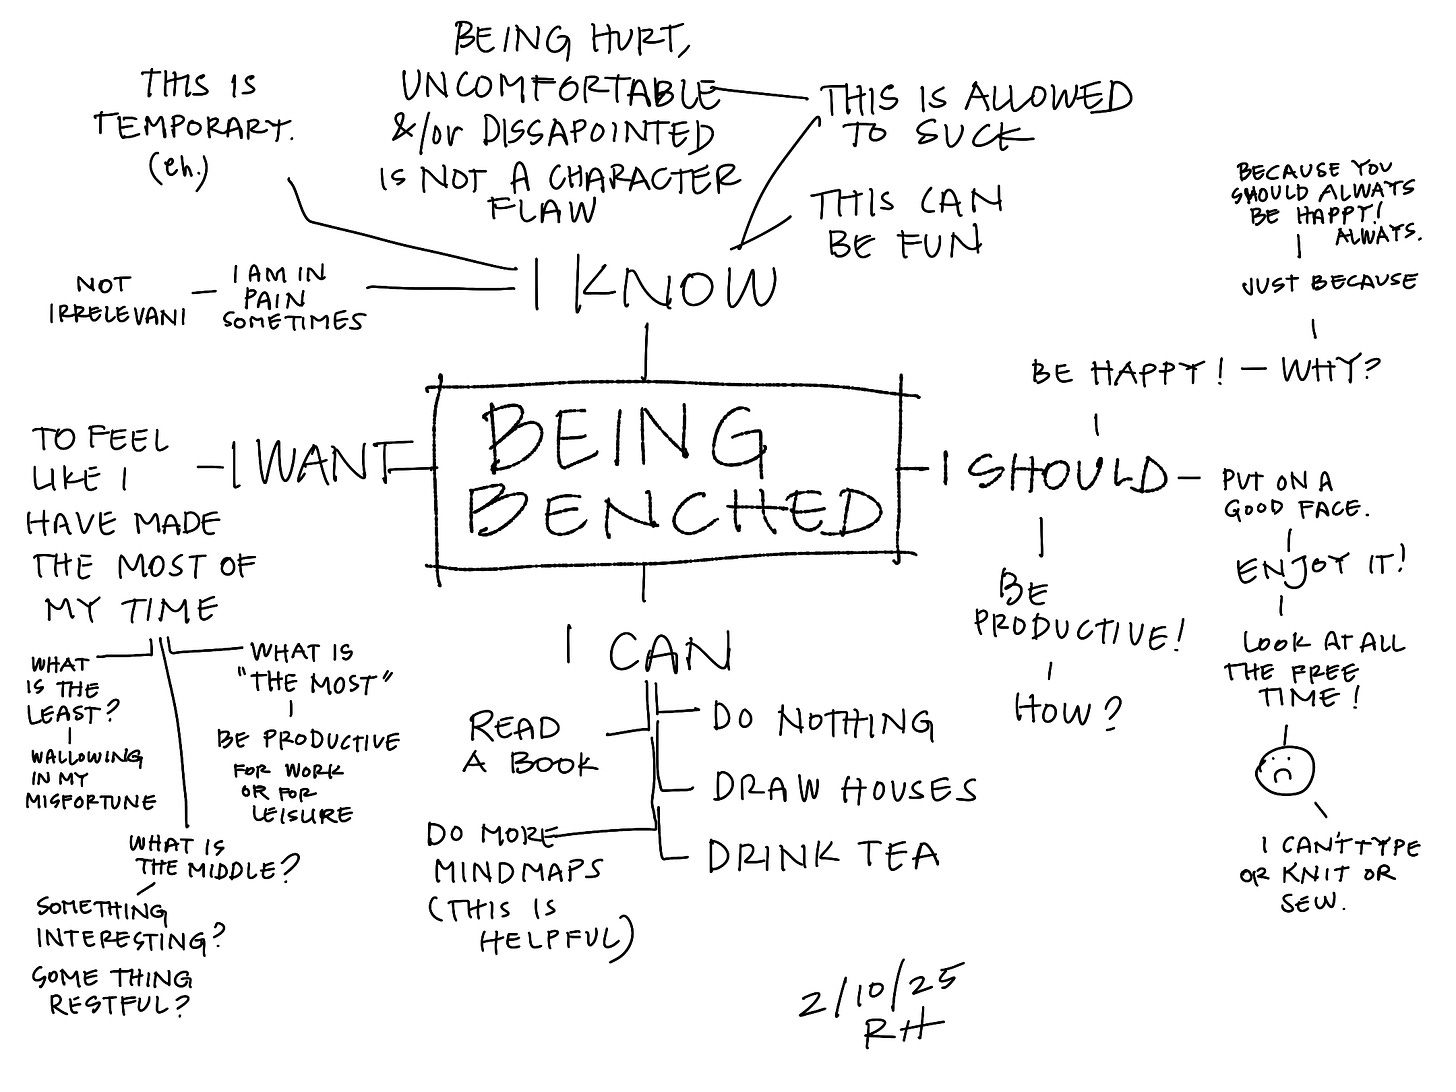 THIS IS
TEMPORARY.
(eh.)
BEING HURT,
UNCOMFORTABLE
&/or DISSAPOINTED
IS NOT A CHARACTER
FLAW
THIS IS ALLOWED
TO SUCK
THIS CAN
BE FUN
I KNOW
I AM IN
PAIN
SOMETIMES
NOT
IRRELEVANT
BECAUSE YOU
SHOULD ALWAYS
BE HAPPY!
ALWAYS.
JUST BECAUSE
BE HAPPY! - WHY?
BEING
BENCHED
I WANT
TO FEEL
LIKE I
HAVE MADE
THE MOST OF
MY TIME
WHAT
IS THE
LEAST?
WALLOWING
IN MY
MISFORTUNE
WHAT IS
"THE MOST"
BE PRODUCTIVE
FOR WORK
OR FOR
LEISURE
WHAT IS
THE MIDDLE?
SOMETHING
INTERESTING?
SOME THING
RESTFUL?
I CAN
READ
A BOOK
DO NOTHING
DRAW HOUSES
DRINK TEA
DO MORE
MINDMAPS
(THIS IS
HELPFUL)
I SHOULD
PUT ON A
GOOD FACE.
ENJOY IT!
LOOK AT ALL
THE FREE
TIME!
I CAN'T TYPE
OR KNIT OR
SEW.
BE
PRODUCTIVE!
HOW?
2/10/25
RH